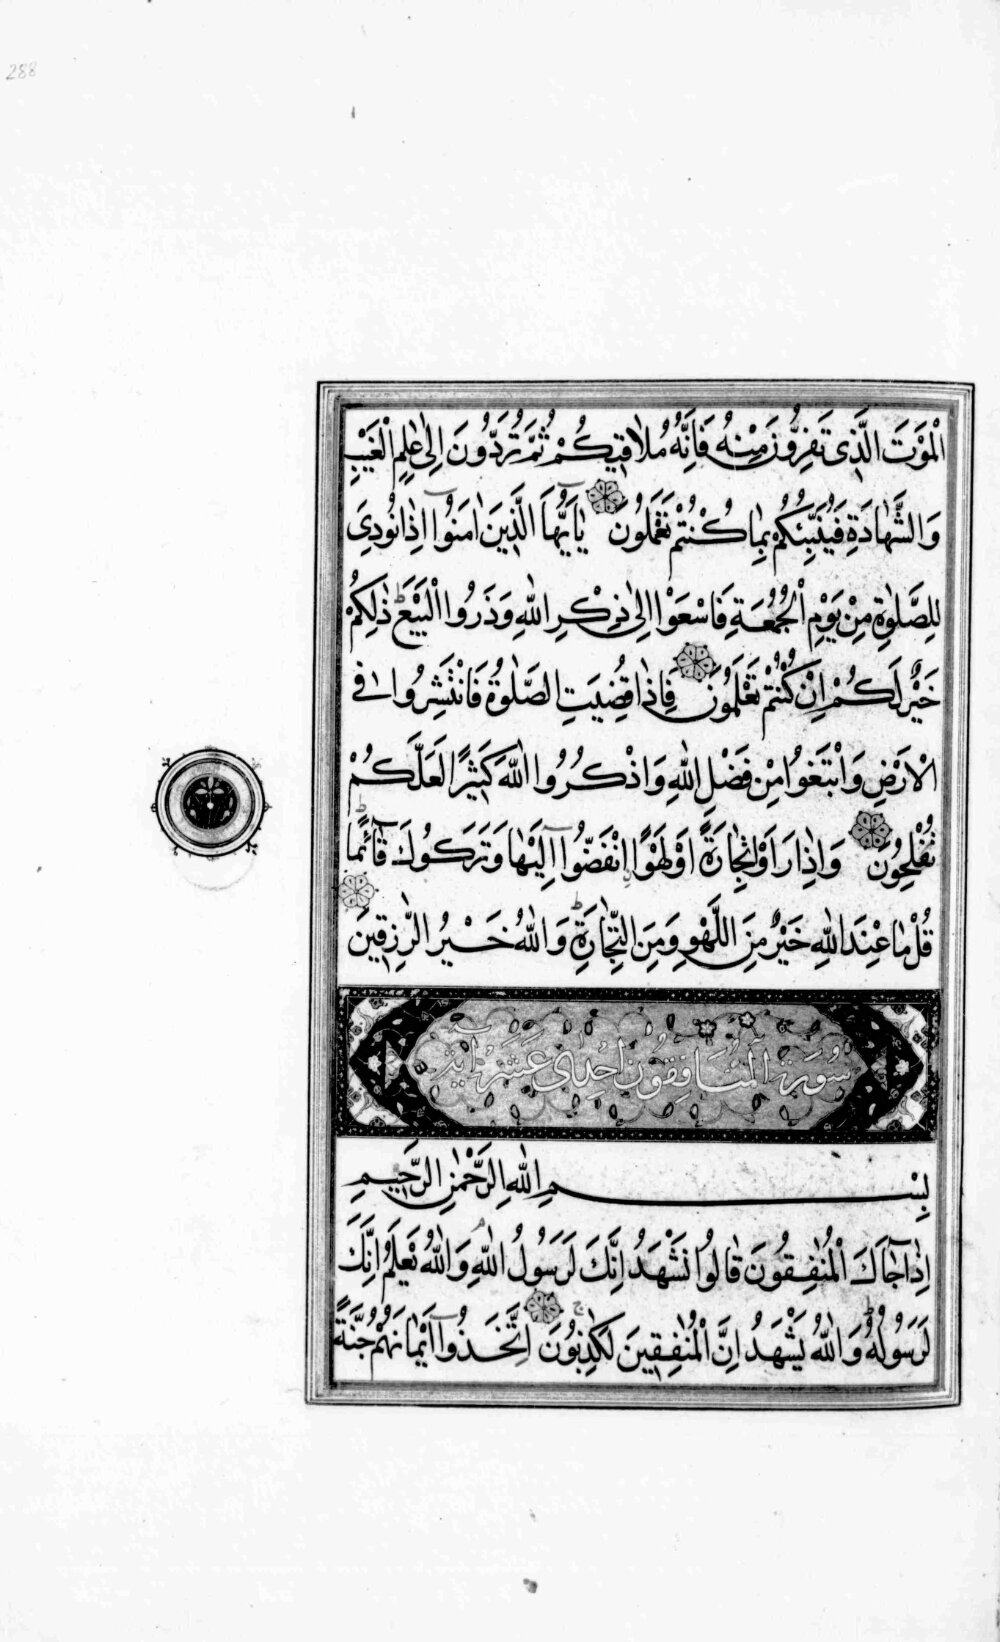 288
الْمَوْتَ الَّذِى تَفِرُّونَ مِنْهُ فَاِنَّهُ مُلَاقِيكُمْ ثُمَّ تُرَدُّونَ اِلٰى عٰلِمِ الْغَيْبِ
وَالشَّهَادَةِ فَيُنَبِّئُكُمْ بِمَا كُنْتُمْ تَعْمَلُونَ يَاۤ اَيُّهَا الَّذِينَ اٰمَنُوۤا اِذَا نُودِىَ
لِلصَّلٰوةِ مِنْ يَوْمِ الْجُمُعَةِ فَاسْعَوْا اِلٰى ذِكْرِ اللّٰهِ وَذَرُوا الْبَيْعَ ط ذٰلِكُمْ
خَيْرٌ لَكُمْ اِنْ كُنْتُمْ تَعْلَمُونَ فَاِذَا قُضِيَتِ الصَّلٰوةُ فَانْتَشِرُوا فِى
الْاَرْضِ وَابْتَغُوا مِنْ فَضْلِ اللّٰهِ وَاذْكُرُوا اللّٰهَ كَثِيرًا لَعَلَّكُمْ
تُفْلِحُونَ وَاِذَا رَاَوْا تِجَارَةً اَوْ لَهْوًا اِنْفَضُّوۤا اِلَيْهَا وَتَرَكُوكَ قَاۤئِمًا ط
قُلْ مَا عِنْدَ اللّٰهِ خَيْرٌ مِنَ اللَّهْوِ وَمِنَ التِّجَارَةِ ط وَاللّٰهُ خَيْرُ الرّٰزِقِينَ
سُورَة المُنَافِقُون اِحْدٰى عَشَرَةَ اٰيَة
بِسْمِ اللّٰهِ الرَّحْمٰنِ الرَّحِيمِ
اِذَا جَاۤءَكَ الْمُنٰفِقُونَ قَالُوا نَشْهَدُ اِنَّكَ لَرَسُولُ اللّٰهِ م وَاللّٰهُ يَعْلَمُ اِنَّكَ
لَرَسُولُهُ ط وَاللّٰهُ يَشْهَدُ اِنَّ الْمُنٰفِقِينَ لَكٰذِبُونَ ج اِتَّخَذُوۤا اَيْمَانَهُمْ جُنَّةً